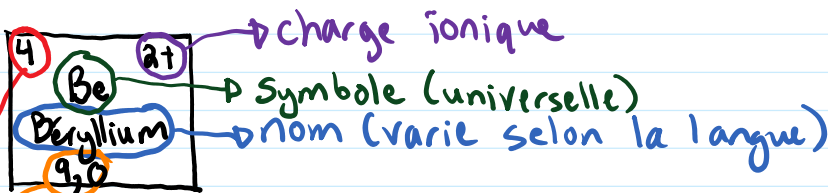 4 2+ charge ionique
Be symbole (universelle)
Béryllium nom (varie selon la langue)
9,0